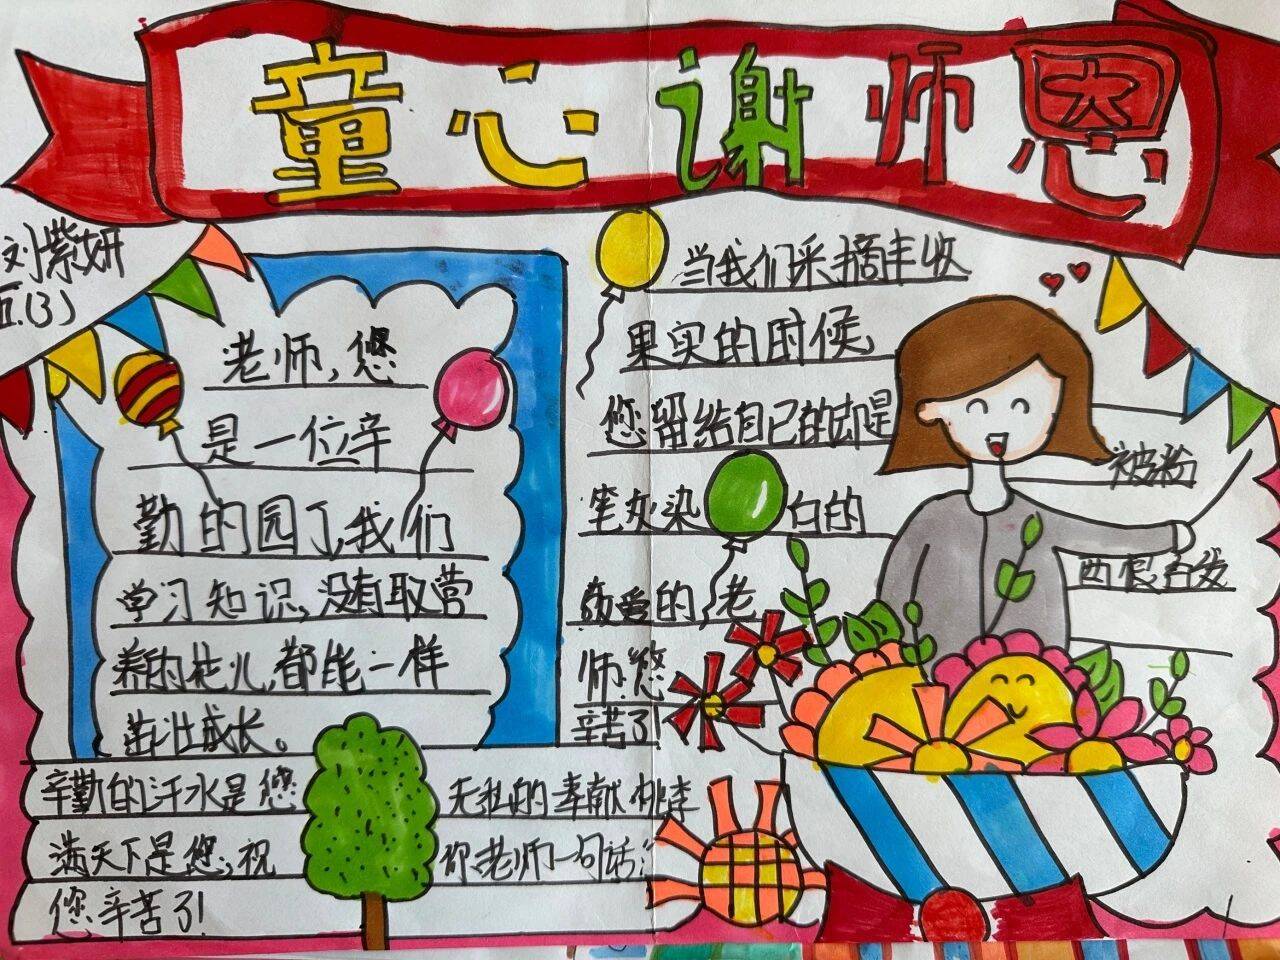 童心谢师恩
刘紫妍
五.(3)
老师,您
是一位辛
勤的园丁,我们
学习知识,没有取营
养的花儿,都能一样
茁壮成长。
当我们采摘丰收
果实的时候,
您留给自己的却是
被粉
笔灰染白的
两鬓白发
敬爱的老
师.您
辛苦了!
辛勤的汗水是您
无私的奉献,桃李
满天下是您,祝
你老师一句话:
您辛苦了!